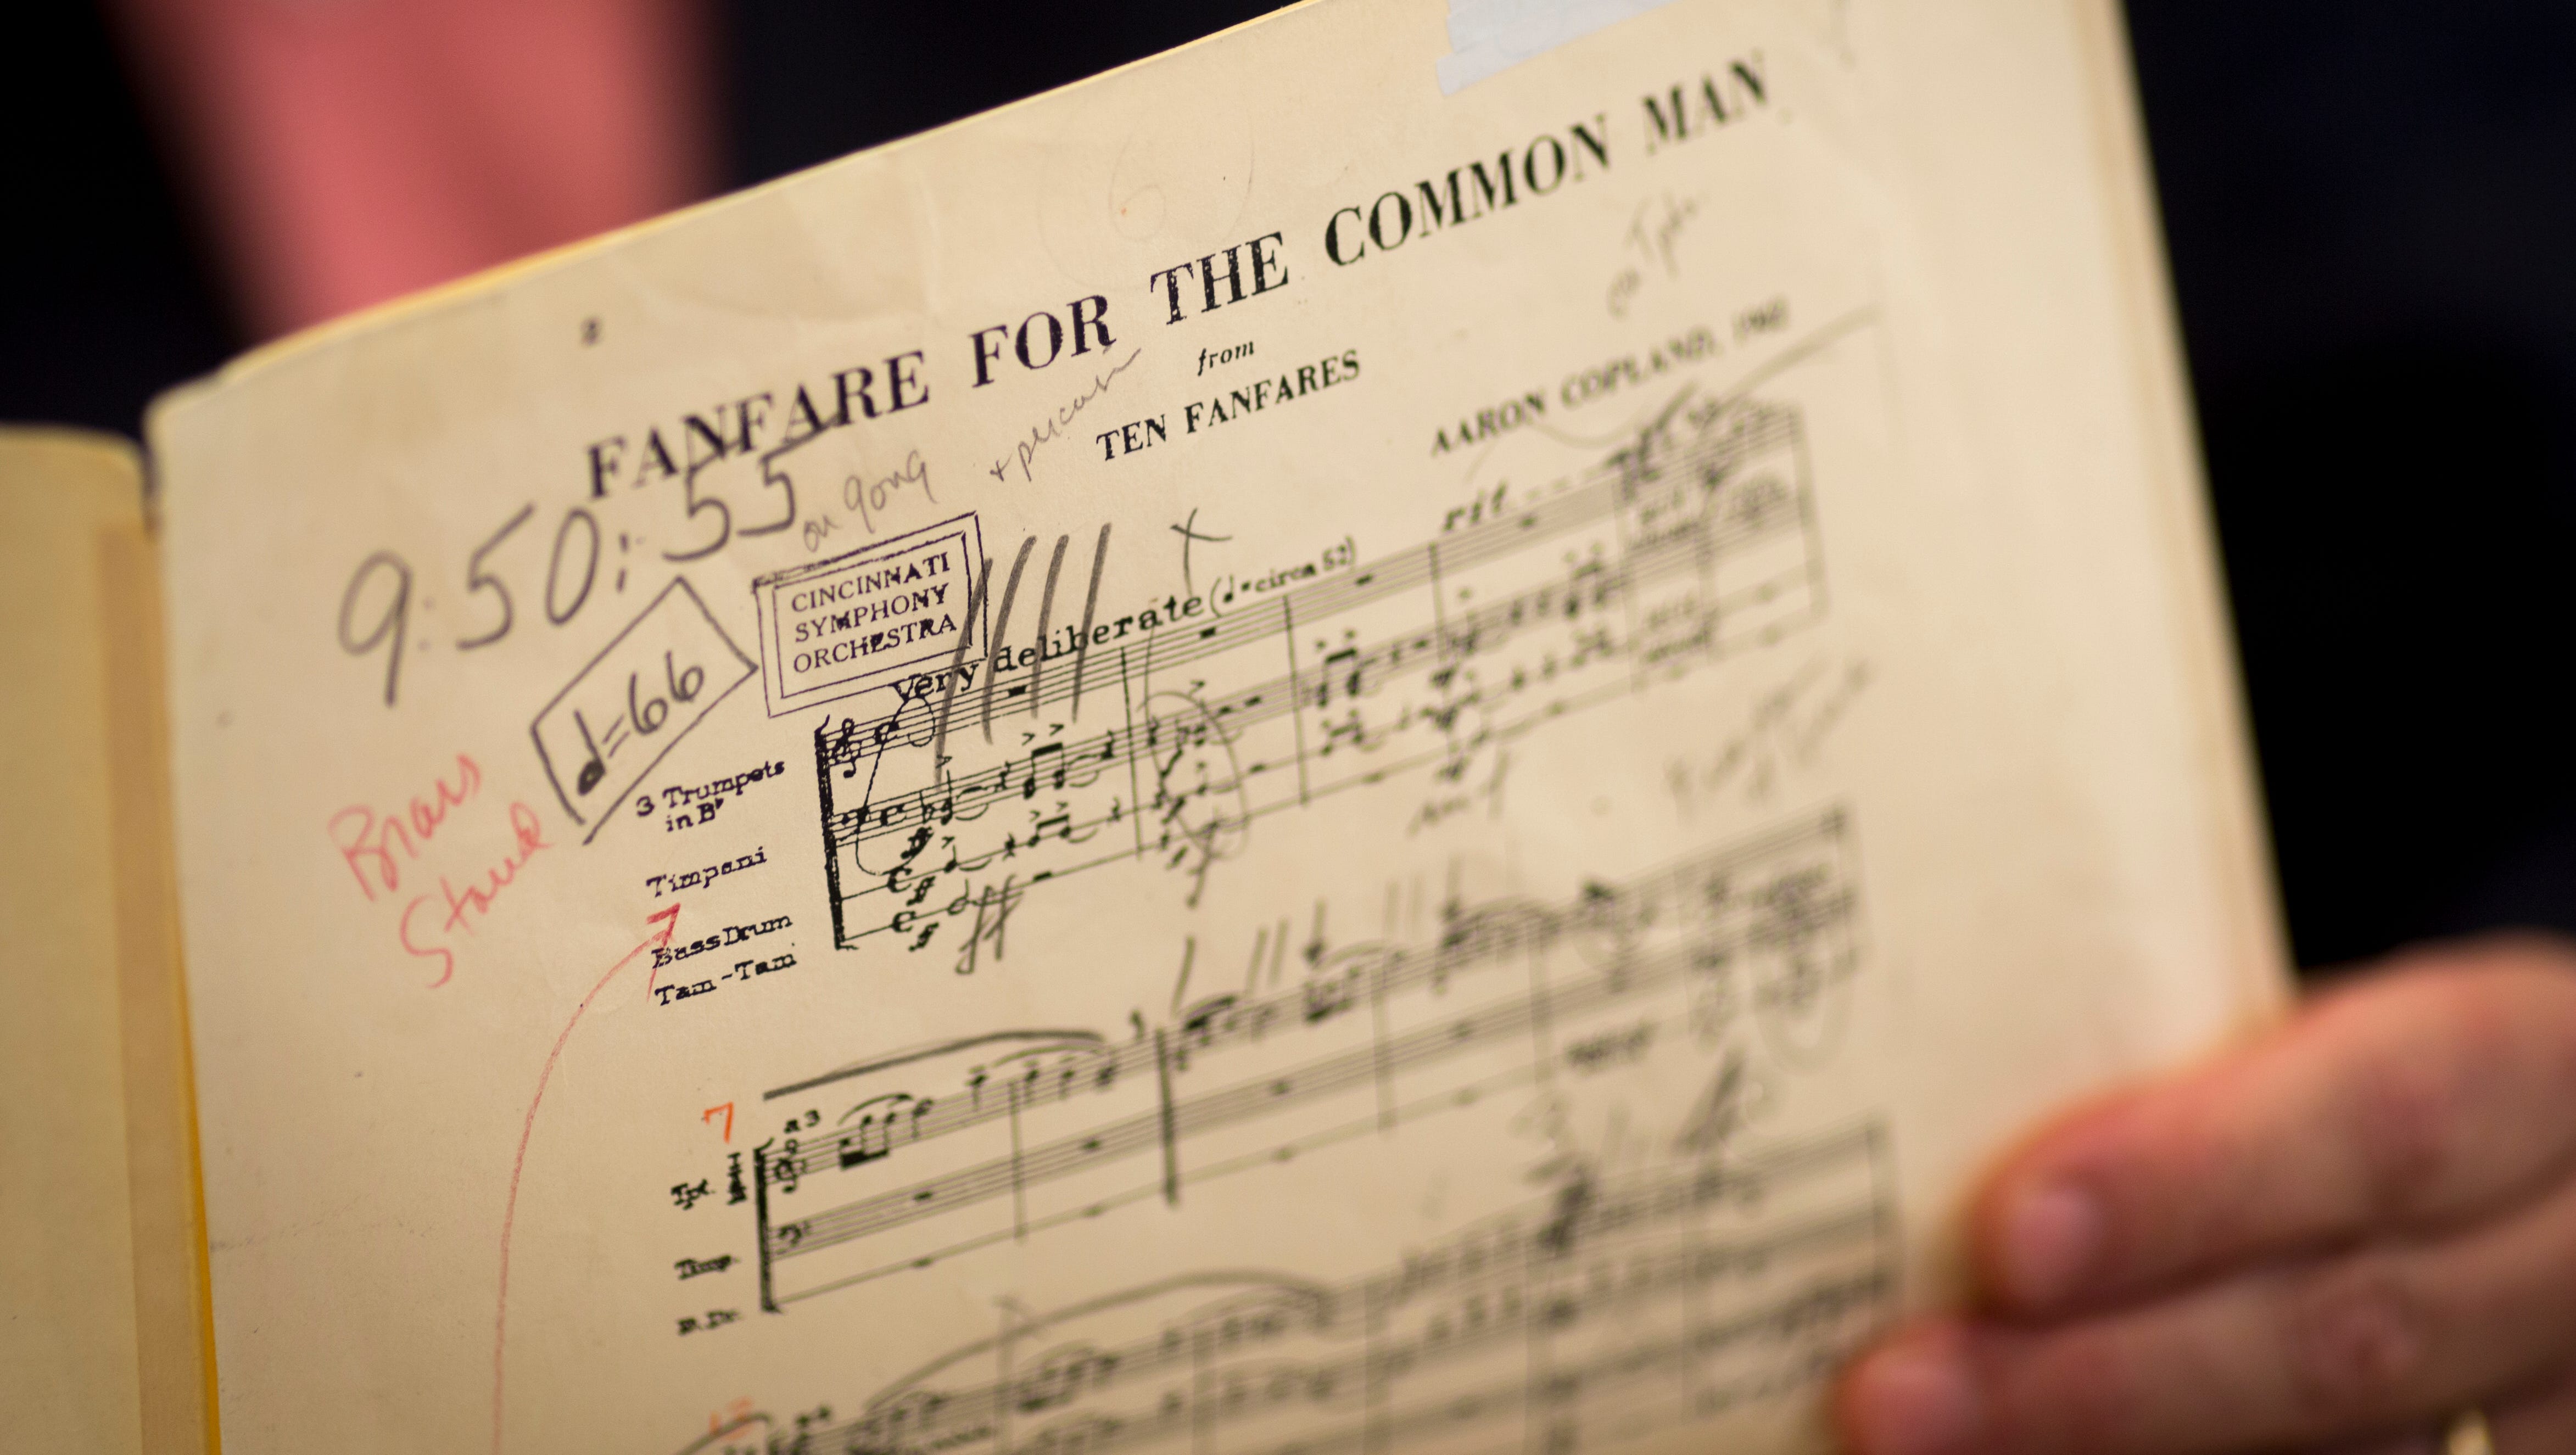 2
FANFARE FOR THE COMMON MAN
from
TEN FANFARES
AARON COPLAND,
9:50:55
on gong
CINCINNATI
SYMPHONY
ORCHESTRA
♩=66
Very deliberate (♩=circa 52)
rit
Brass
Stand
3 Trumpets
in B♭
Timpani
Bass Drum
Tam-Tam
ff
7
a3
Timp.
B.Dr.